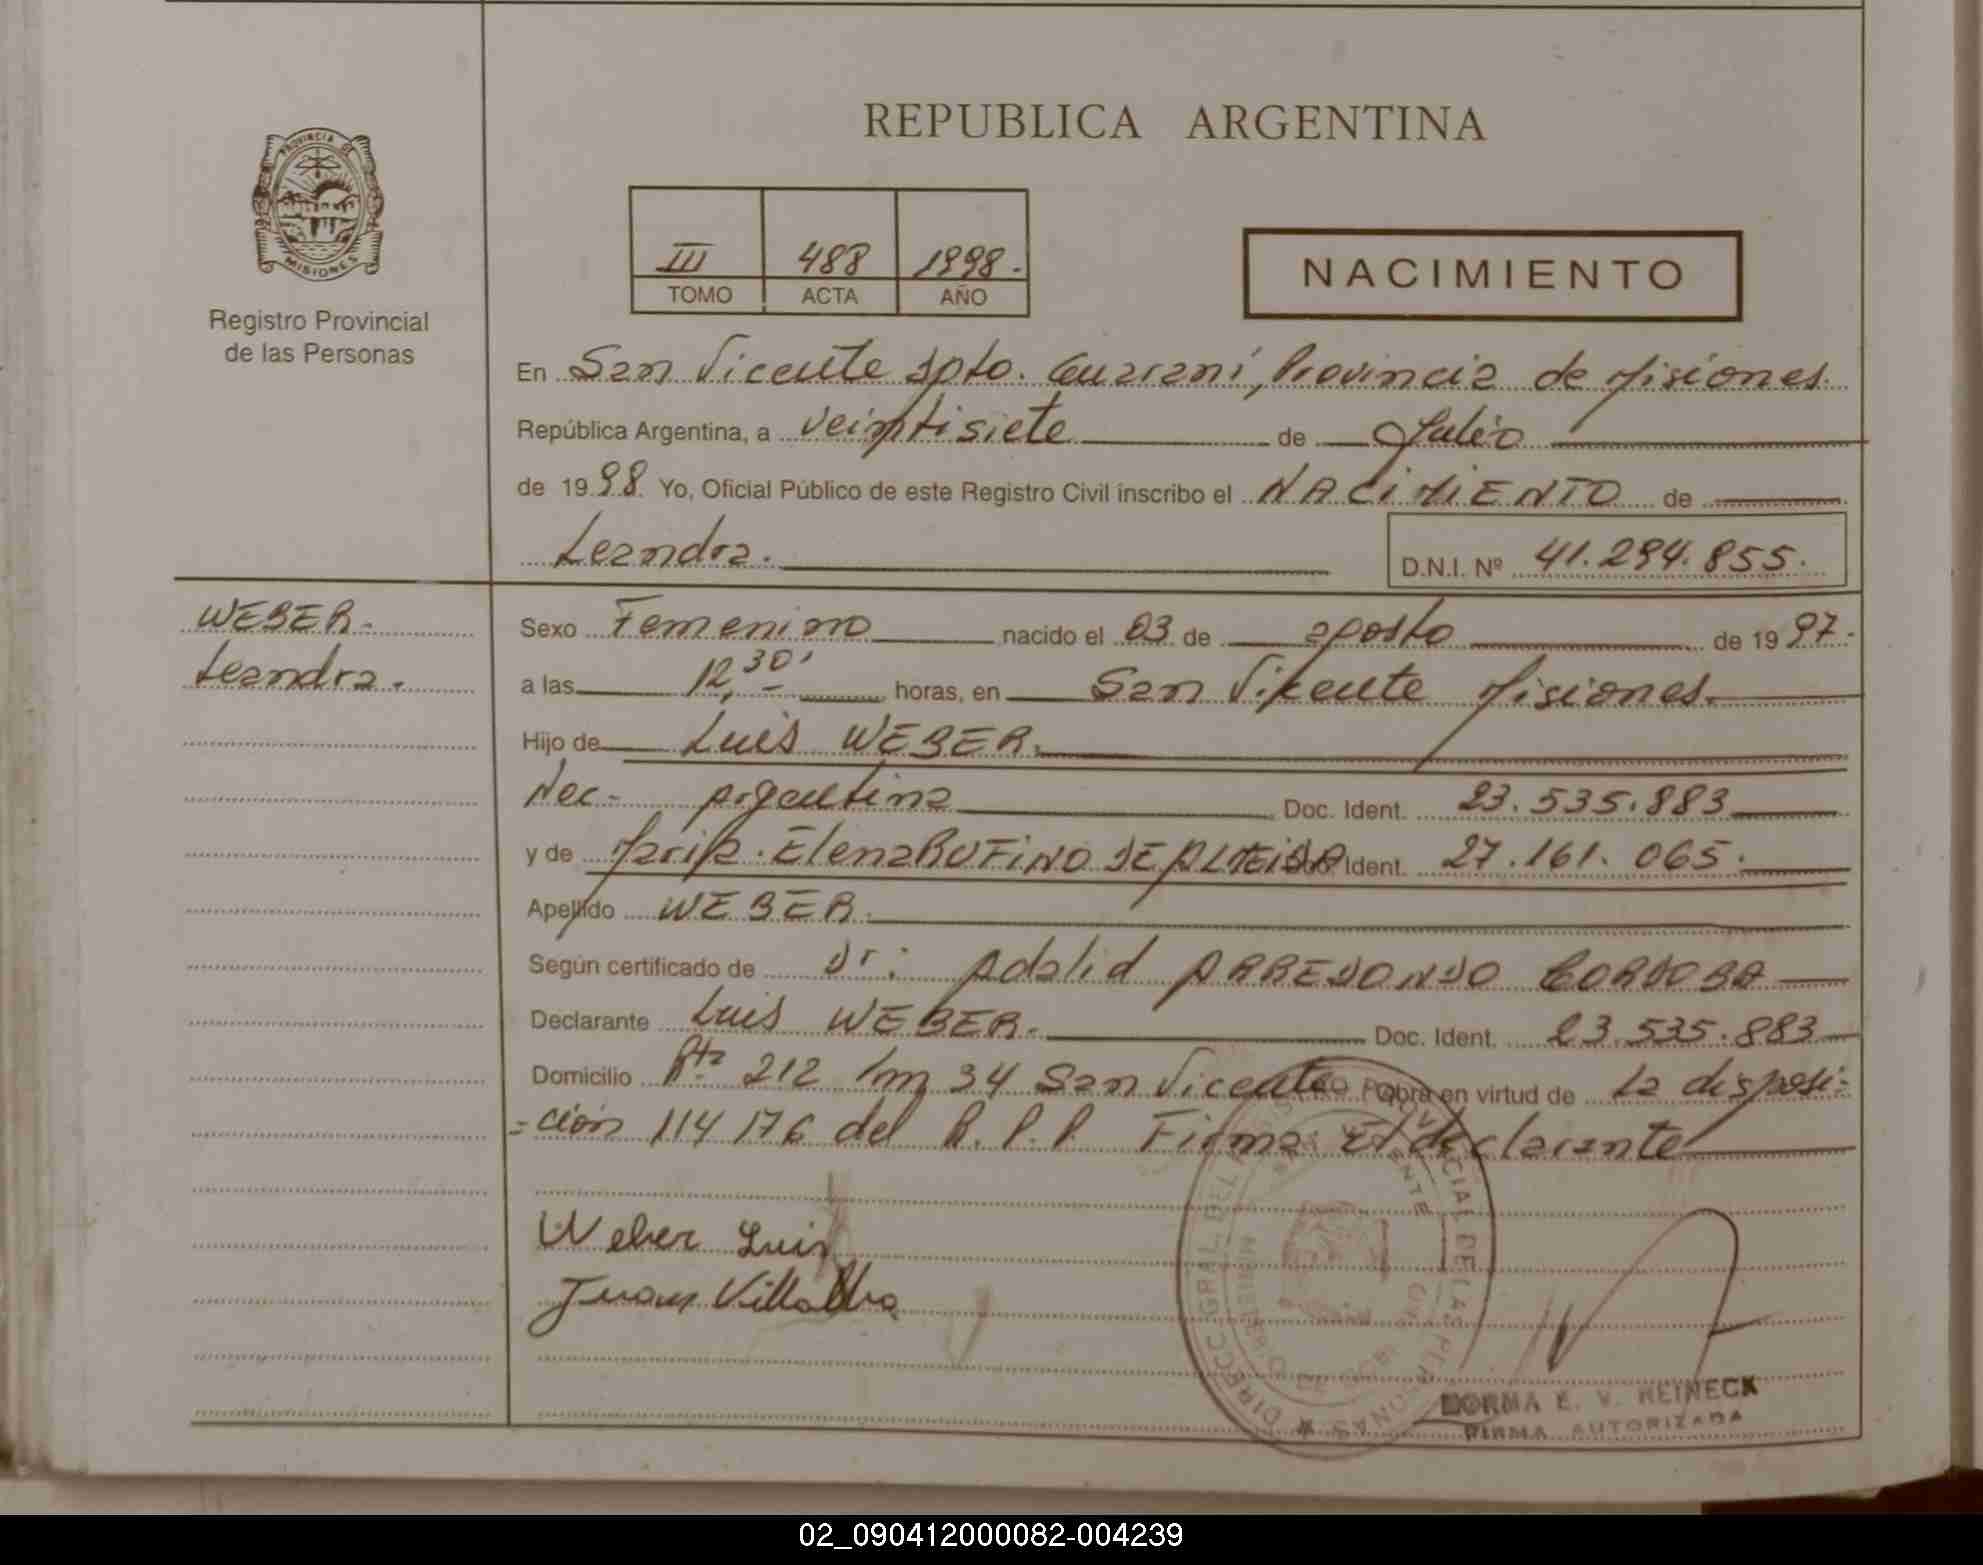 REPUBLICA ARGENTINA
PROVINCIA DE
MISIONES
Registro Provincial
de las Personas
III 488 1998.
TOMO ACTA AÑO
NACIMIENTO
En San Vicente Dpto. Guaraní, Provincia de Misiones.
República Argentina, a veintisiete de Julio
de 1998. Yo, Oficial Público de este Registro Civil inscribo el NACIMIENTO de
Leandra.
D.N.I. Nº 41.294.855.
WEBER.
Leandra.
Sexo Femenino nacido el 03 de agosto de 1997.
a las 12,30' horas, en San Vicente Misiones.
Hijo de Luis WEBER.
Nac- Argentina Doc. Ident. 23.535.883
y de Maria Elena RUFINO DE ALMEIDA Doc. Ident. 27.161.065.
Apellido WEBER.
Según certificado de Dr: Adalid ARREDONDO CORDOBA
Declarante Luis WEBER. Doc. Ident. 23.535.883
Domicilio Rta 212 Km 34 San Vicente Obra en virtud de La disposi-
=ción 114176 del R.P.P. Firma: El declarante
Weber Luis
Juan Villalba
DIRECC. GRAL. DEL REGISTRO PROVINCIAL DE LAS PERSONAS
NORMA E. V. HEINECK
FIRMA AUTORIZADA
02_090412000082-004239